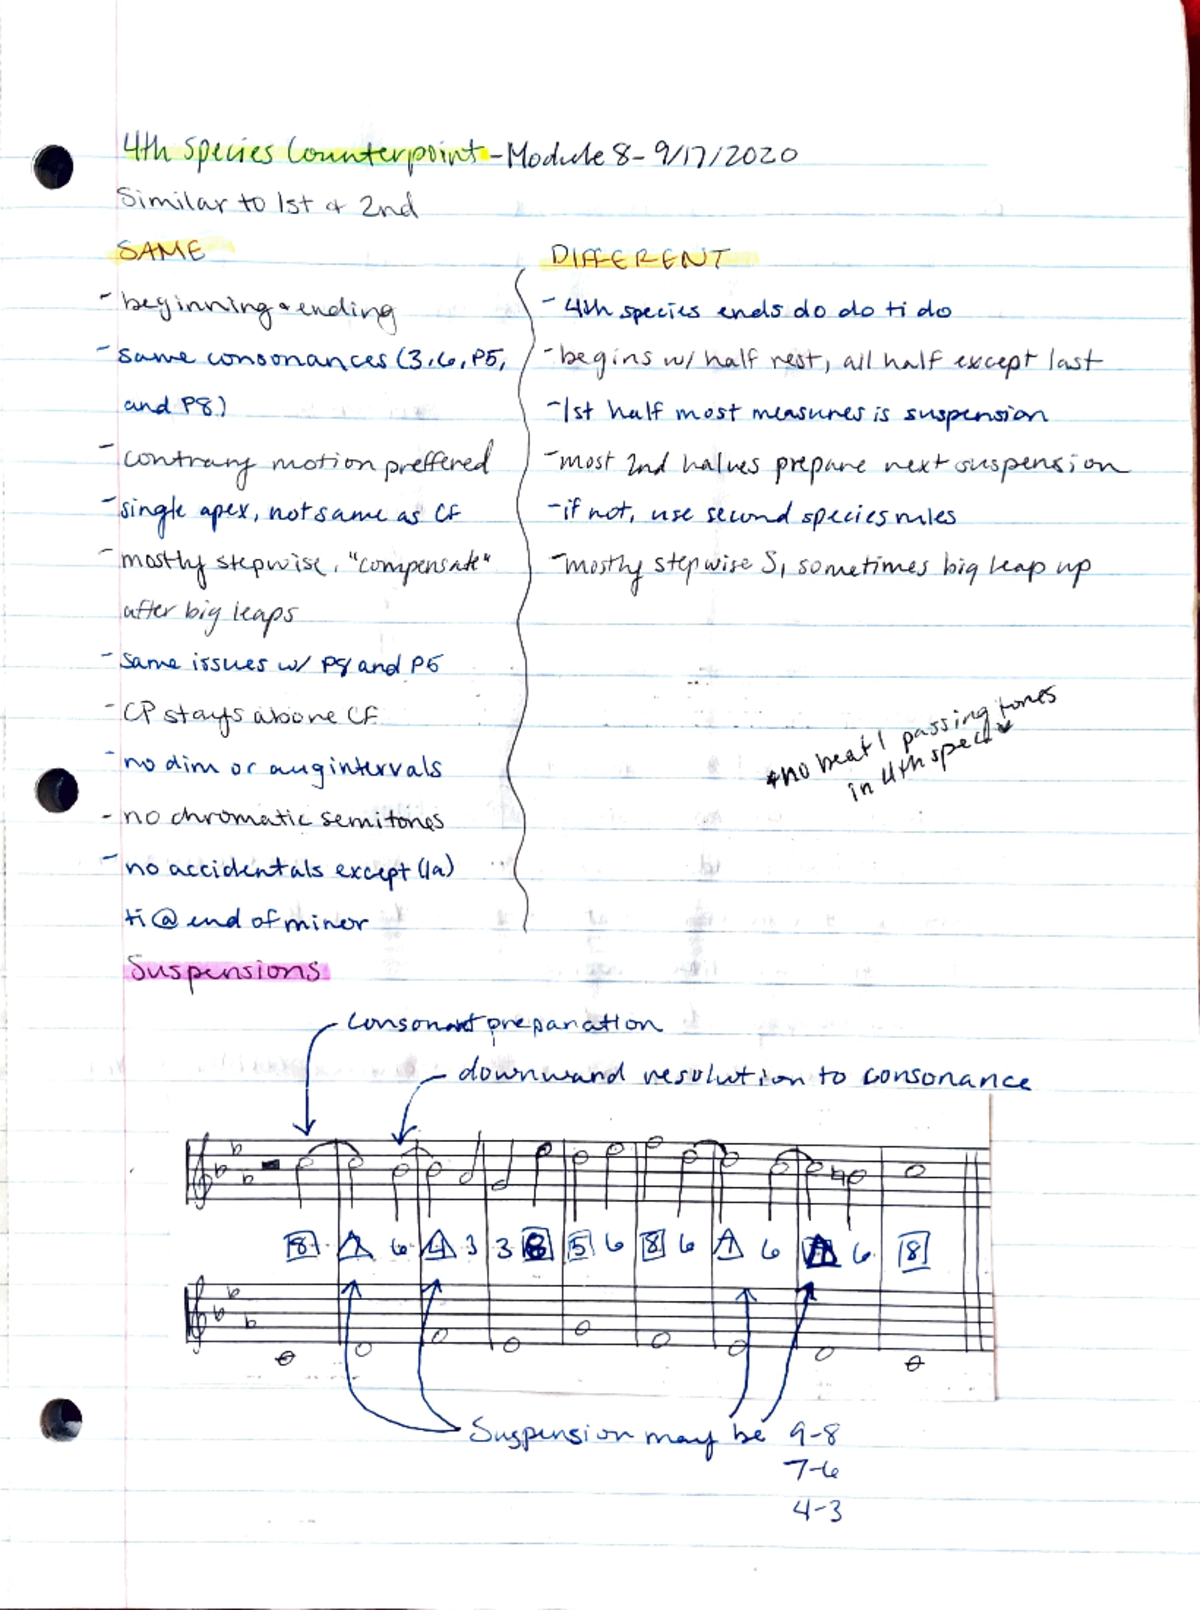 4th Species Counterpoint - Module 8 - 9/17/2020
Similar to 1st & 2nd
SAME
- beginning & ending
- same consonances (3, 6, P5,
and P8)
- contrary motion preffered
- single apex, not same as CF
- mostly stepwise, "compensate"
after big leaps
- same issues w/ P8 and P5
- CP stays above CF
- no dim or aug intervals
- no chromatic semitones
- no accidentals except (la)
ti @ end of minor
DIFFERENT
- 4th species ends do do ti do
- begins w/ half rest, all half except last
- 1st half most measures is suspension
- most 2nd halves prepare next suspension
- if not, use second species rules
- mostly stepwise ↓, sometimes big leap up
*no beat 1 passing tones
in 4th spec
Suspensions
consonant preparation
downward resolution to consonance
8 7 6 4 3 3 8 5 6 8 6 7 6 7 6 8
Suspension may be 9-8
7-6
4-3